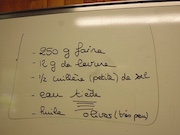 - 250 g farine
- 12 g de levure
- 1/2 cuillère (petite) de sel
- eau tiède
- huile olives (très peu)